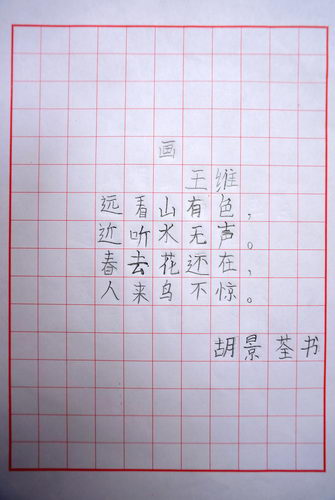 画
王维
远看山有色，
近听水无声。
春去花还在，
人来鸟不惊。
胡景荃书